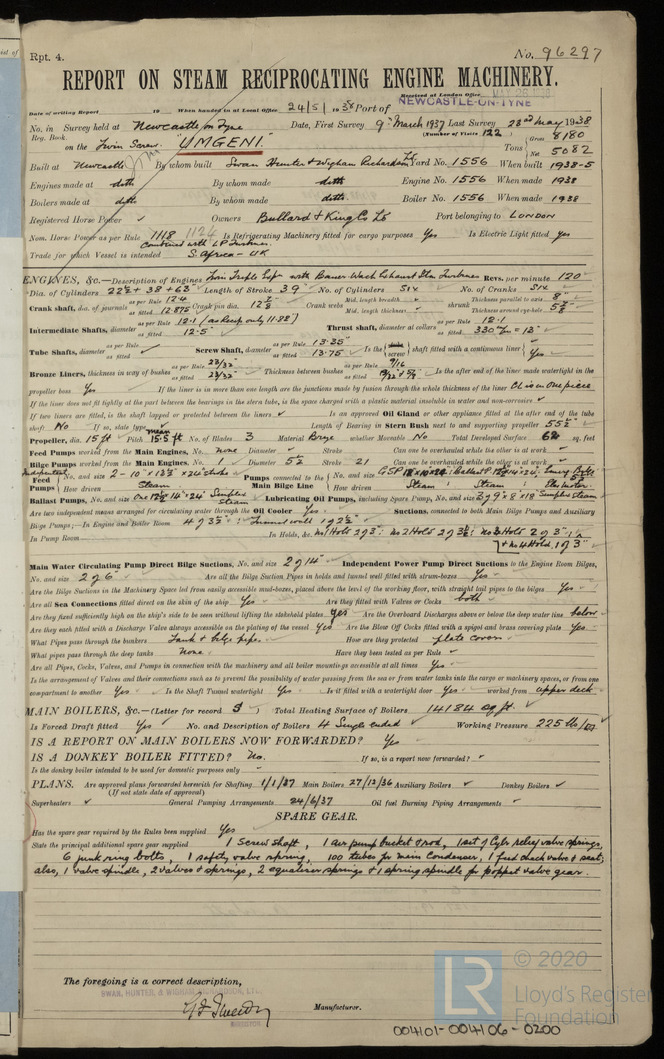 Rpt. 4.
No. 96297
REPORT ON STEAM RECIPROCATING ENGINE MACHINERY.
Received at London Office MAY 26 1938
Date of writing Report 19 When handed in at Local Office 24/5/1938 Port of NEWCASTLE-ON-TYNE
No. in Survey held at Newcastle on Tyne Date, First Survey 9th March 1937 Last Survey 23rd May 1938
Reg. Book. (Number of Visits 122)
on the Twin Screw "UMGENI" Tons Gross 8180 Net 5082
Built at Newcastle By whom built Swan Hunter & Wigham Richardson Ld Yard No. 1556 When built 1938-5
Engines made at ditto By whom made ditto Engine No. 1556 When made 1938
Boilers made at ditto By whom made ditto Boiler No. 1556 When made 1938
Registered Horse Power ✓ Owners Bullard & King Co Ld Port belonging to LONDON
Nom. Horse Power as per Rule 1118 1124 Is Refrigerating Machinery fitted for cargo purposes Yes Is Electric Light fitted yes
Combined with LP Turbines.
Trade for which Vessel is intended S. Africa - UK
ENGINES, &c.—Description of Engines Twin Triple Exp with Bauer Wach Exhaust Stm Turbines Revs. per minute 120
Dia. of Cylinders 22½ + 38 + 63 Length of Stroke 39" No. of Cylinders SIX No. of Cranks SIX
Crank shaft, dia. of journals as per Rule 12.4 as fitted 12.875 Crank pin dia. 12⅞ Crank webs Mid. length breadth ✓ Mid. length thickness ✓ shrunk Thickness parallel to axis 8" Thickness around eye-hole 5⅞
Intermediate Shafts, diameter as per Rule 12.1 (as Recip only 11.88) as fitted 12.5 Thrust shaft, diameter at collars as per Rule 12.1 as fitted 330 m/m = 13"
Tube Shafts, diameter as per Rule ✓ as fitted ✓ Screw Shaft, diameter as per Rule 13.35 as fitted 13.75 Is the screw shaft fitted with a continuous liner Yes
Bronze Liners, thickness in way of bushes as per Rule 23/32 as fitted 23/32 Thickness between bushes as per Rule 9/16 as fitted Is the after end of the liner made watertight in the
propeller boss Yes If the liner is in more than one length are the junctions made by fusion through the whole thickness of the liner CL is in One piece
If the liner does not fit tightly at the part between the bearings in the stern tube, is the space charged with a plastic material insoluble in water and non-corrosive ✓
If two liners are fitted, is the shaft lapped or protected between the liners ✓ Is an approved Oil Gland or other appliance fitted at the after end of the tube
shaft No If so, state type ✓ Length of Bearing in Stern Bush next to and supporting propeller 55½"
Propeller, dia. 15 ft Pitch mean 15.5 ft No. of Blades 3 Material Bronze whether Moveable No Total Developed Surface sq. feet
Feed Pumps worked from the Main Engines, No. none Diameter ✓ Stroke ✓ Can one be overhauled while the other is at work ✓
Bilge Pumps worked from the Main Engines, No. 1 Diameter 5½ Stroke 21 Can one be overhauled while the other is at work ✓
Independent Feed Pumps No. and size 2 - 10" × 13½ × 24" stroke How driven Steam Pumps connected to the Main Bilge Line No. and size How driven Steam : Steam : Electric
Ballast Pumps, No. and size One 12½ 14" × 24" Simplex Steam Lubricating Oil Pumps, including Spare Pump, No. and size 2 of 9" × 8" × 18" Simplex steam
Are two independent means arranged for circulating water through the Oil Cooler Yes Suctions, connected to both Main Bilge Pumps and Auxiliary
Bilge Pumps;—In Engine and Boiler Room 4 of 3½" : Tunnel well 1 of 2½"
In Pump Room In Holds, &c. No 1 Hold 2 of 3" : No 2 Hold 2 of 3½ : No 3 Hold 2 of 3"
& No 4 Hold 1 of 3"
Main Water Circulating Pump Direct Bilge Suctions, No. and size 2 of 14" Independent Power Pump Direct Suctions to the Engine Room Bilges,
No. and size 2 of 6" Are all the Bilge Suction Pipes in holds and tunnel well fitted with strum-boxes Yes
Are the Bilge Suctions in the Machinery Space led from easily accessible mud-boxes, placed above the level of the working floor, with straight tail pipes to the bilges Yes
Are all Sea Connections fitted direct on the skin of the ship Yes Are they fitted with Valves or Cocks both
Are they fixed sufficiently high on the ship's side to be seen without lifting the stokehold plates Yes Are the Overboard Discharges above or below the deep water line below
Are they each fitted with a Discharge Valve always accessible on the plating of the vessel Yes Are the Blow Off Cocks fitted with a spigot and brass covering plate Yes
What Pipes pass through the bunkers Tank & bilge pipes How are they protected plate covers
What pipes pass through the deep tanks None. Have they been tested as per Rule ✓
Are all Pipes, Cocks, Valves, and Pumps in connection with the machinery and all boiler mountings accessible at all times Yes
Is the arrangement of Valves and their connections such as to prevent the possibility of water passing from the sea or from water tanks into the cargo or machinery spaces, or from one
compartment to another Yes Is the Shaft Tunnel watertight Yes Is it fitted with a watertight door Yes worked from upper deck
MAIN BOILERS, &c.—(Letter for record S) Total Heating Surface of Boilers 14184 sq ft.
Is Forced Draft fitted Yes No. and Description of Boilers 4 Single ended Working Pressure 225 lb/sq"
IS A REPORT ON MAIN BOILERS NOW FORWARDED? Yes
IS A DONKEY BOILER FITTED? No. If so, is a report now forwarded? ✓
Is the donkey boiler intended to be used for domestic purposes only
PLANS. Are approved plans forwarded herewith for Shafting 1/1/37 Main Boilers 27/12/36 Auxiliary Boilers ✓ Donkey Boilers ✓
(If not state date of approval)
Superheaters ✓ General Pumping Arrangements 24/6/37 Oil fuel Burning Piping Arrangements ✓
SPARE GEAR.
Has the spare gear required by the Rules been supplied Yes
State the principal additional spare gear supplied 1 Screw shaft, 1 air pump bucket & rod, 1 set of Cylr relief valve springs,
6 junk ring bolts, 1 safety valve spring, 100 tubes for main Condenser, 1 feed check valve & seat;
also, 1 valve spindle, 2 valves & springs, 2 equaliser springs & 1 spring spindle for poppet valve gear.
The foregoing is a correct description,
SWAN, HUNTER, & WIGHAM RICHARDSON, LTD.
Manufacturer.
DIRECTOR
LR
© 2020
Lloyd's Register
Foundation
004101-004106-0200